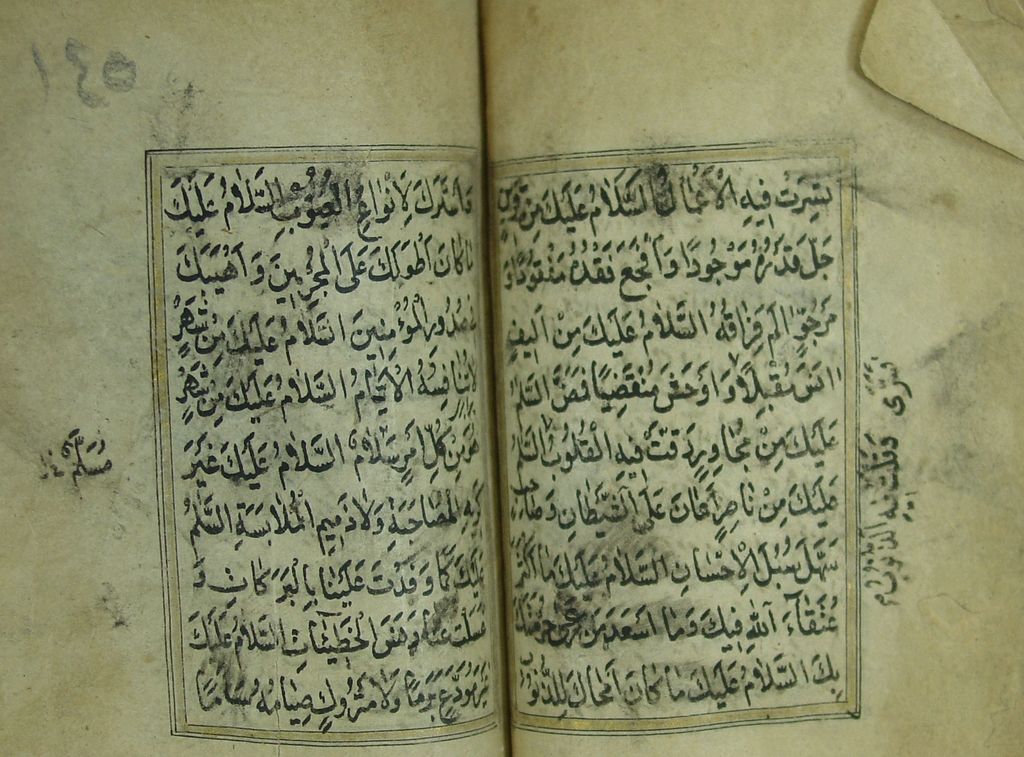 يَسَّرَتْ فِيهِ الْأَعْمَالُ السَّلَامُ عَلَيْكَ مِنْ قَرِينٍ
جَلَّ قَدْرُهُ مَوْجُودًا وَأَفْجَعَ فَقْدُهُ مَفْقُودًا وَ
مَرْجُوٍّ الَمَ فِرَاقُهُ السَّلَامُ عَلَيْكَ مِنْ اَلِيفٍ
انَسَ مُقْبِلًا وَاَوْحَشَ مُنْقَضِيًا فَمَضَّ السَّلَمُ
عَلَيْكَ مِنْ مُجَاوِرٍ رَقَّتْ فِيهِ الْقُلُوبُ السَّلَمُ
عَلَيْكَ مِنْ نَاصِرٍ اَعَانَ عَلَى الشَّيْطَانِ وَصَاحِبٍ
سَهَّلَ سُبُلَ الْاِحْسَانِ السَّلَامُ عَلَيْكَ مَا اَكْثَرَ
عُتَقَاءَ اللهِ فِيكَ وَمَا اَسْعَدَ مَنْ رَعَى حُرْمَتَكَ
بِكَ السَّلَامُ عَلَيْكَ مَا كَانَ اَمْحَاكَ لِلذُّنُوبِ
وَقَلَّتْ فِيهِ الذُّنُوبُ
١٤٥
وَاَسْتَرَكَ لِاَنْوَاعِ الْعُيُوبِ السَّلَامُ عَلَيْكَ
مَا كَانَ اَطْوَلَكَ عَلَى الْمُجْرِمِينَ وَاَهْيَبَكَ
فِي صُدُورِ الْمُؤْمِنِينَ السَّلَامُ عَلَيْكَ مِنْ شَهْرٍ
لَا تُنَافِسُهُ الْاَيَّامُ السَّلَامُ عَلَيْكَ مِنْ شَهْرٍ
هُوَ مِنْ كُلِّ اَمْرٍ سَلَامٌ السَّلَامُ عَلَيْكَ غَيْرَ
كَرِيهِ الْمُصَاحَبَةِ وَلَا ذَمِيمِ الْمُلَابَسَةِ السَّلَمُ
عَلَيْكَ كَمَا وَفَدْتَ عَلَيْنَا بِالْبَرَكَاتِ وَ
غَسَلْتَ عَنَّا دَنَسَ الْخَطِيئَاتِ السَّلَامُ عَلَيْكَ
غَيْرَ مُوَدَّعٍ بَرَمًا وَلَا مَتْرُوكٍ صِيَامُهُ سَأَمًا